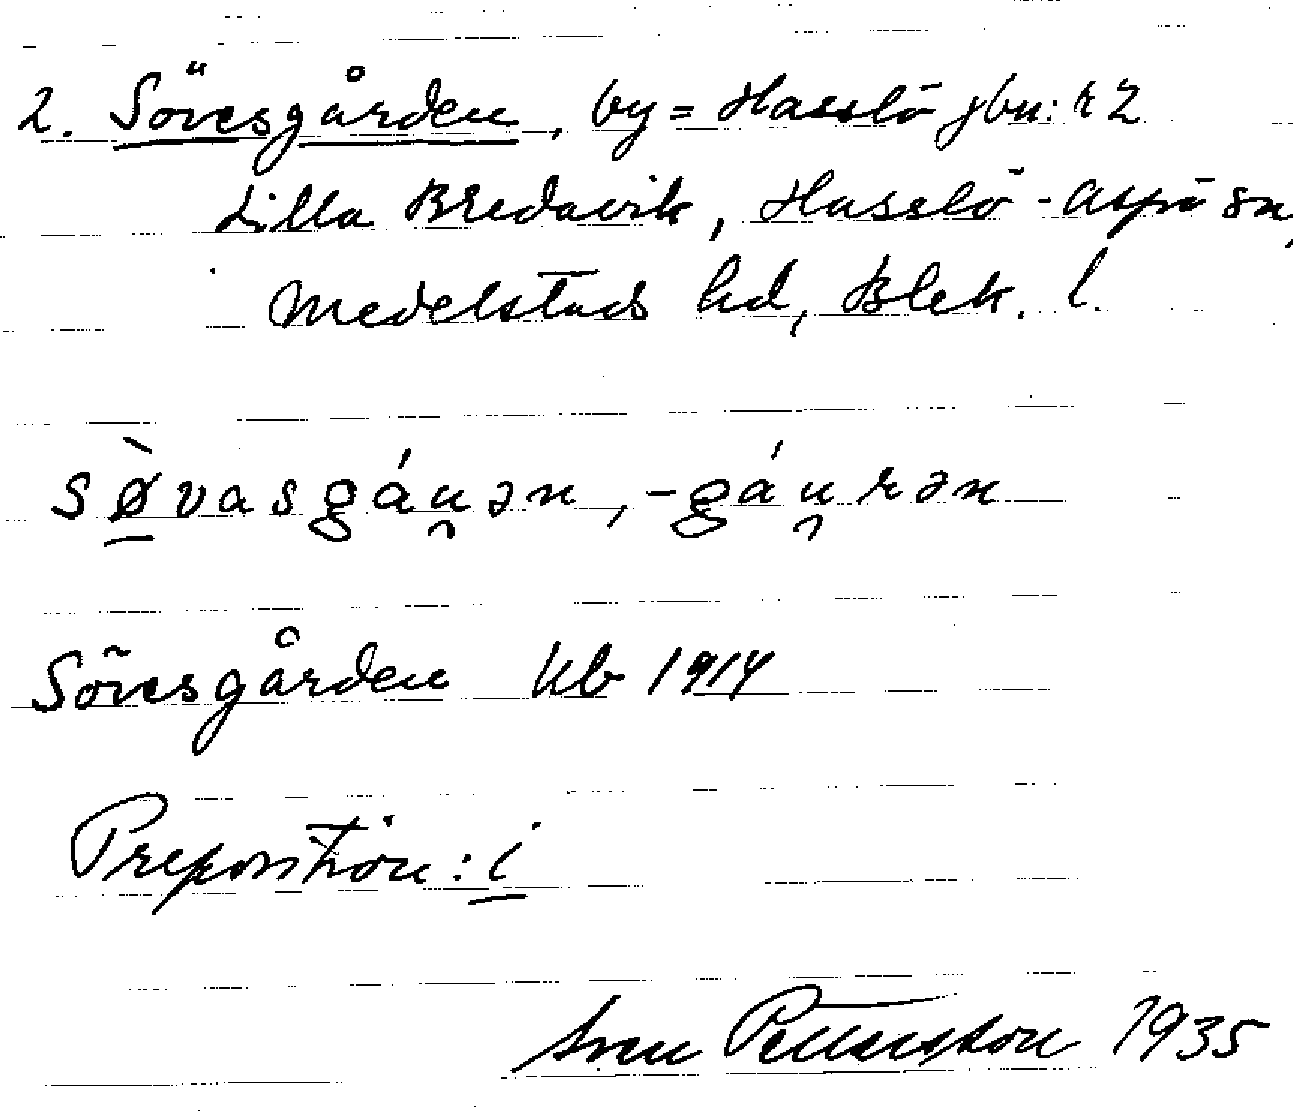 2. Sövesgården, by = Hasslö jbn: r 2
Lilla Bredavik, Hasslö-Aspö sn,
Medelstads hd, Blek. l.
sø̠̀vasgáu̯ən, -gáu̯rən
Sövesgården kb 1914
Preposition: i
Sven Pettersson 1935